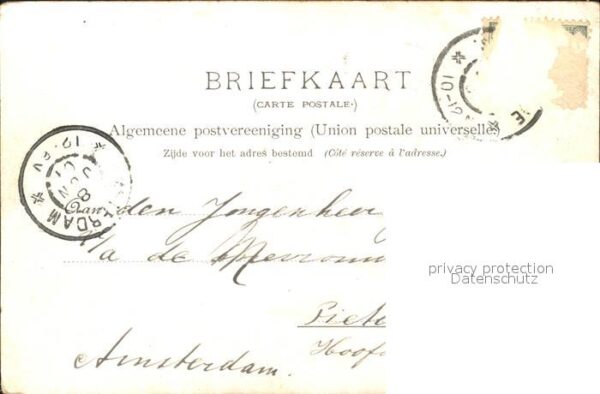 BRIEFKAART
(CARTE POSTALE.)
Algemeene postvereeniging (Union postale universelle)
Zijde voor het adres bestemd (Côté réservé à l'adresse.)
Aan den Jongenheer
p/a de Mevrouw
Piet
Hoof
Amsterdam.
RDAM
privacy protection
Datenschutz